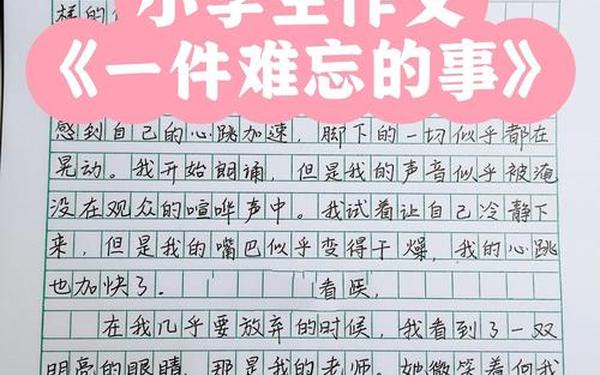 样的
小学生作文
《一件难忘的事》
感到自己的心跳加速，脚下的一切似乎都在
晃动。我开始朗诵，但是我的声音似乎被淹
没在观众的喧哗声中。我试着让自己冷静下
来，但是我的嘴巴似乎变得干燥，我的心跳
也加快了. 看
在我几乎要放弃的时候，我看到了一双
明亮的眼睛，那是我的老师。她微笑着向我